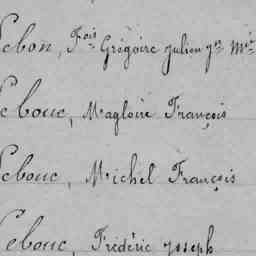 Lebon, Fois Grégoire Julien
Lebouc, Magloire François
Lebouc, Michel François
Lebouc, Frédéric Joseph